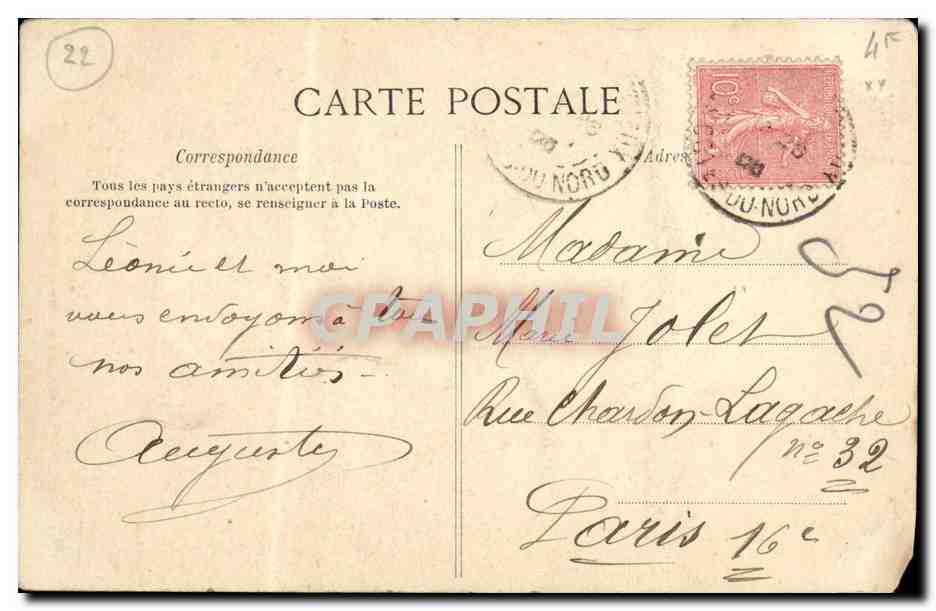 22
4F
xy
CARTE POSTALE
10c
DU NORD
DU-NORD
Correspondance
Adres
Tous les pays étrangers n'acceptent pas la
correspondance au recto, se renseigner à la Poste.
Léonie et moi
vous envoyons à tous
nos amitiés -
Auguste
Madame
Marie Jolet
Rue Chardon-Lagache
no 32
Paris 16e
52
CPAPHIL